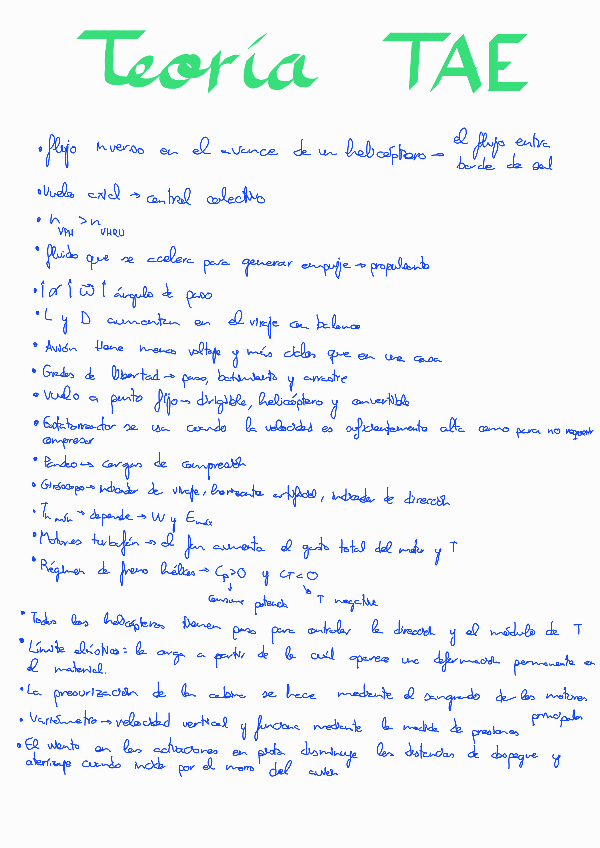 Teoría TAE
• flujo inverso en el avance de un helicóptero → el flujo entra
borde de sal
• Vuelo axial → control colectivo
• n VPH > n VHRU
• fluido que se acelera para generar empuje → propulsante
• ↑ α ↑ ω ↑ ángulo de paso
• L y D aumentan en el viraje con balance
• Avión tiene menos voltaje y más ciclos que en una casa
• Grados de libertad → paso, batimiento y arrastre
• Vuelo a punto fijo → dirigible, helicóptero y convertible
• Estatorreactor se usa cuando la velocidad es suficientemente alta como para no requerir
compresor
• Pandeo → cargas de compresión
• Giróscopo → indicador de viraje, horizonte artificial, indicador de dirección
• Tn mín → depende → W y Emáx
• Motores turbofán → el fan aumenta el gasto total del motor y T
• Régimen de freno hélices → Cp>0 y CT<0
consume potencia T negativa
• Todos los helicópteros tienen paso para controlar la dirección y el módulo de T
• Límite elástico: la carga a partir de la cuál aparece una deformación permanente en
el material.
• La presurización de la cabina se hace mediante el sangrado de los motores
principales
• Variómetro → velocidad vertical y funciona mediante la medida de presiones
• El viento en las actuaciones en pista disminuye las distancias de despegue y
aterrizaje cuando incide por el morro del avión